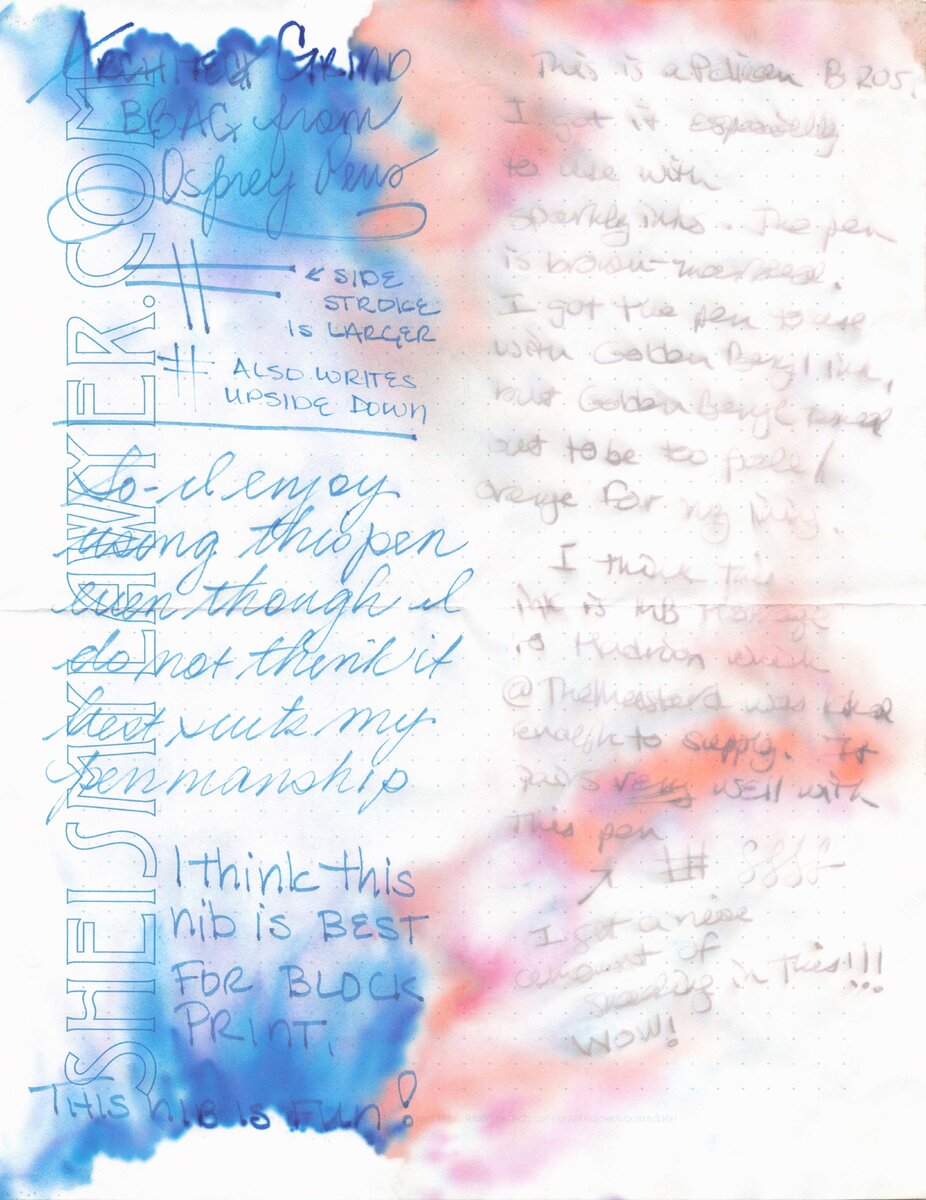 SHEISMYLAWYER.COM
ARCHITECT GRIND
BBAG from
Osprey Pens
← SIDE
STROKE
IS LARGER
ALSO WRITES
UPSIDE DOWN
So - I enjoy
using this pen
even though I
do not think it
best suits my
penmanship
I think this
nib is BEST
FOR BLOCK
PRINT.
THIS nib is Fun!
This is a Pelikan B 205.
I got it especially
to use with
sparkly inks. The pen
is brown-marbled.
I got the pen to use
with Golden Beryl ink,
but Golden Beryl turned
out to be too pale/
orange for my liking.
I think this
ink is MB Homage
to Hadrian which
was kind
enough to supply. It
pairs very well with
this pen
I get a nice
amount of
in this!!!
WOW!